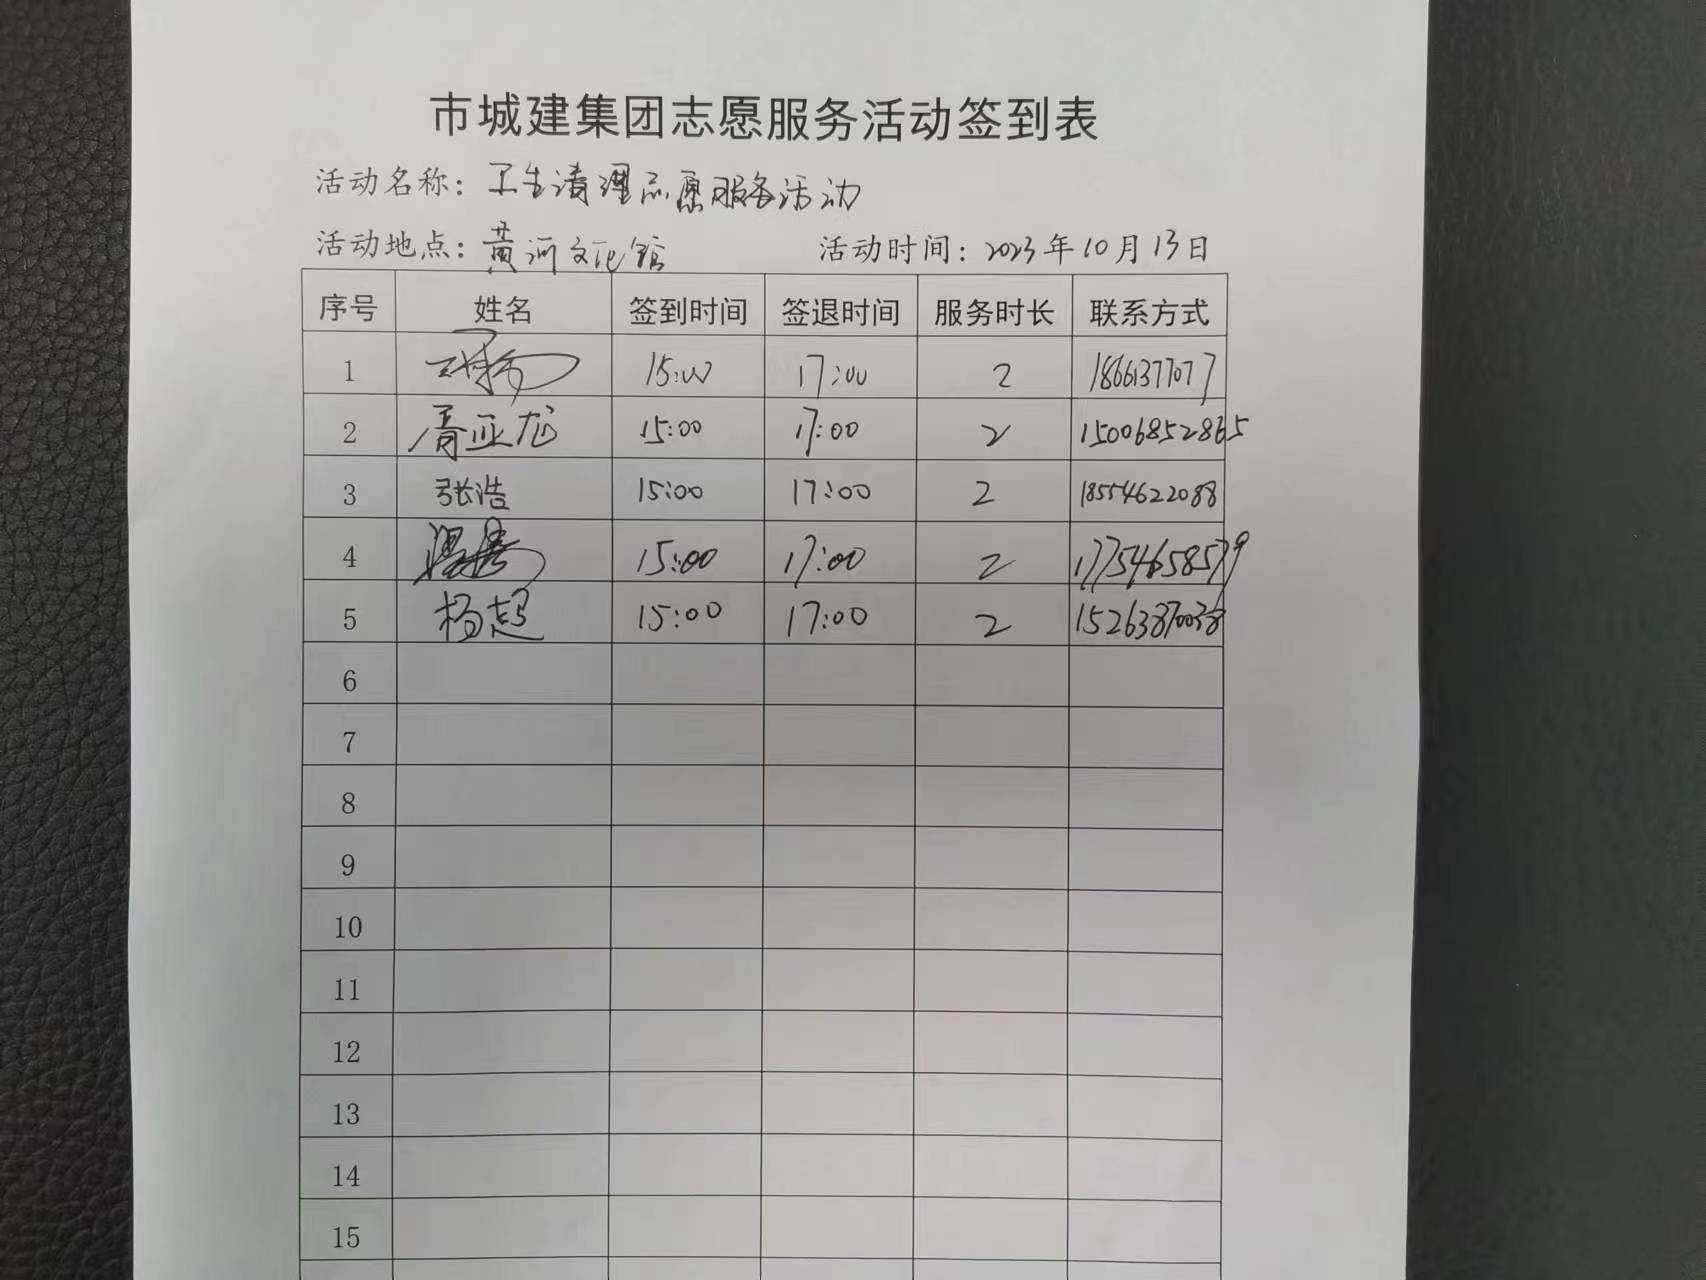 市城建集团志愿服务活动签到表
活动名称：卫生清理志愿服务活动
活动地点：黄河文化馆 活动时间：2023年10月13日
序号 姓名 签到时间 签退时间 服务时长 联系方式
1 15:00 17:00 2 18661377077
2 胥亚龙 15:00 17:00 2 15006852865
3 张浩 15:00 17:00 2 18554622088
4 15:00 17:00 2 17754658579
5 杨超 15:00 17:00 2 15263870038
6
7
8
9
10
11
12
13
14
15